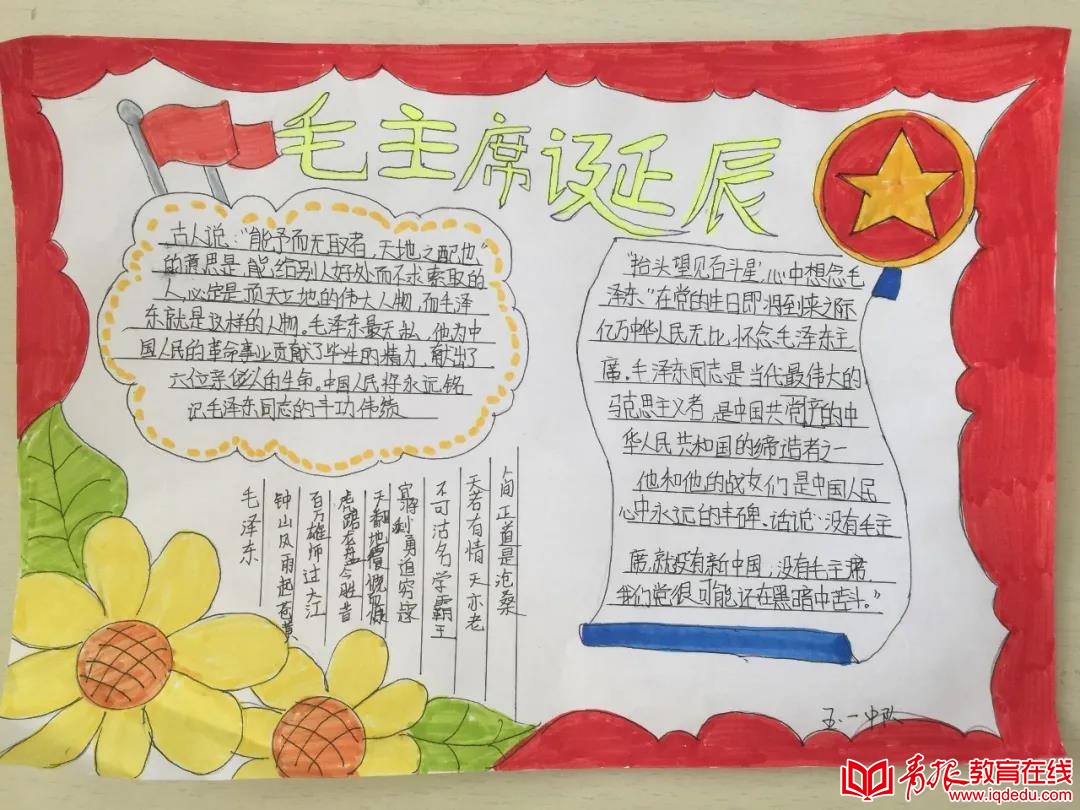 毛主席诞辰
古人说："能予而无取者，天地之配也"
的意思是，能给别人好处而不求索取的
人，必定是顶天立地的伟大人物，而毛泽
东就是这样的人物。毛泽东最无私，他为中
国人民的革命事业贡献了毕生的精力，献出了
六位亲人的生命。中国人民将永远铭
记毛泽东同志的丰功伟绩
"抬头望见百斗星，心中想念毛
泽东"在党的生日即将到来之际
亿万中华人民无比，怀念毛泽东主
席。毛泽东同志是当代最伟大的
马克思主义者，是中国共党产的中
华人民共和国的缔造者之一
他和他的战友们是中国人民
心中永远的丰碑、话说"没有毛主
席，就没有新中国，没有毛主席，
我们党很可能还在黑暗中苦斗。"
毛泽东
钟山风雨起苍黄
百万雄师过大江
虎踞龙盘今胜昔
天翻地覆慨
宜将剩勇追穷寇
不可沽名学霸王
天若有情天亦老
人间正道是沧桑
五·一中队
青报教育在线
www.iqdedu.com